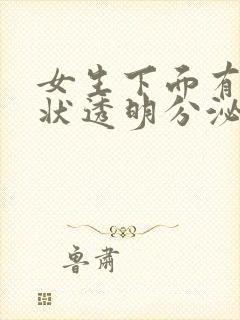 女生下面有
状透明分泌
鲁肃